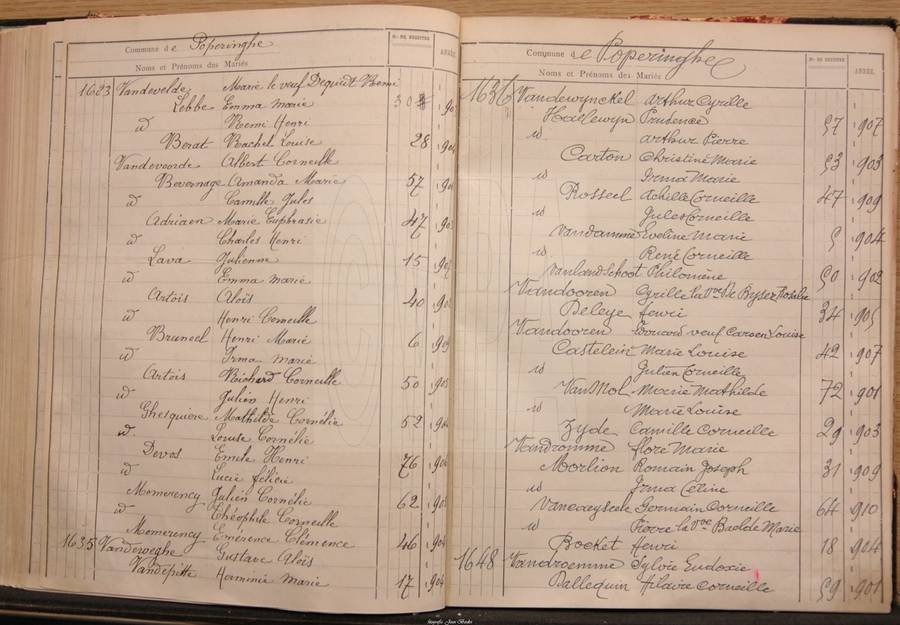 Commune de Poperinghe
Noms et Prénoms des Mariés
Nº DE REGISTRE
ANNÉE
1623 Vandevelde Marie le veuf Dequidt Remi
Lebbe Emma Marie 30
id Remi Henri
Berat Rachel Louise 28
Vandevoorde Albert Corneille
Bevernage Amanda Marie 57
id Camille Jules
Adriaen Marie Euphrasie 47
id Charles Henri
Lava Julienne 15
id Emma Marie
Artois Aloïs 40
id Henri Corneille
Bruneel Henri Marie 6
id Irma Marie
Artois Richard Corneille 50
id Julien Henri
Ghesquiere Mathilde Cornélie 52
id Louise Cornélie
Devos Emile Henri 76
id Lucie félicie
Momerency Julien Cornélie 62
id Théophile Corneille
Momerency Emérence Clémence 46
1635 Vanderveghe Gustave Aloïs
Vandeputte Herminie Marie 17
Commune de Poperinghe
Noms et Prénoms des Mariés
Nº DE REGISTRE
ANNÉE
1636 Vandewynckel Arthur Cyrille
Hallewyn Prudence 57 1907
id Arthur Pierre
Carton Christine Marie 53 1903
id Irma Marie
Rosseel Achille Corneille 47 1909
id Jules Corneille
Vandamme Eveline Marie 5 1904
id René Corneille
Vanlandschoot Philomène 50 1902
Vandooren Cyrille la Vve De Byser Rosalie
Deleye Henri 34 1905
Vandooren Edouard veuf Caroen Louise
Castelein Marie Louise 42 1907
id Julien Corneille
VanMol Marie Mathilde 72 1901
id Marie Louise
Zyde Camille Corneille 29 1903
Vandromme flore Marie
Morlion Romain Joseph 31 1909
id Irma Céline
Vancayseele Germain Corneille 64 1910
id Pierre la Vve Baelde Marie
Bocket Henri 18 1904
1648 Vandroemme Sylvie Eudoxie
Dallequin Hilaire Corneille 59 1901